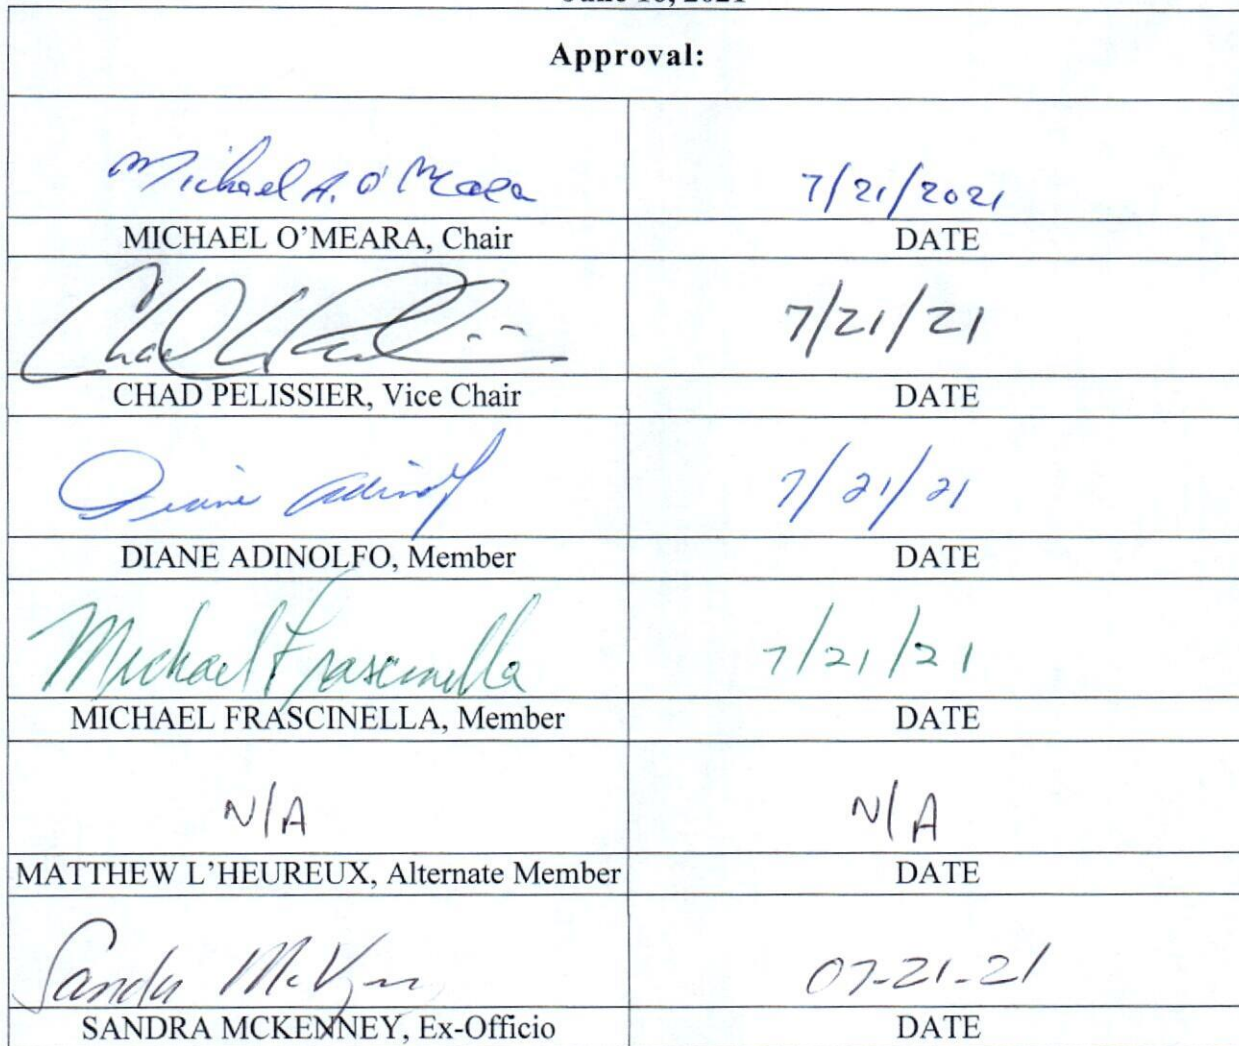 Approval:
Michael A. O'Meara 7/21/2021
MICHAEL O'MEARA, Chair DATE
7/21/21
CHAD PELISSIER, Vice Chair DATE
Diane Adinolf 7/21/21
DIANE ADINOLFO, Member DATE
Michael Frascinella 7/21/21
MICHAEL FRASCINELLA, Member DATE
N/A N/A
MATTHEW L'HEUREUX, Alternate Member DATE
07-21-21
SANDRA MCKENNEY, Ex-Officio DATE